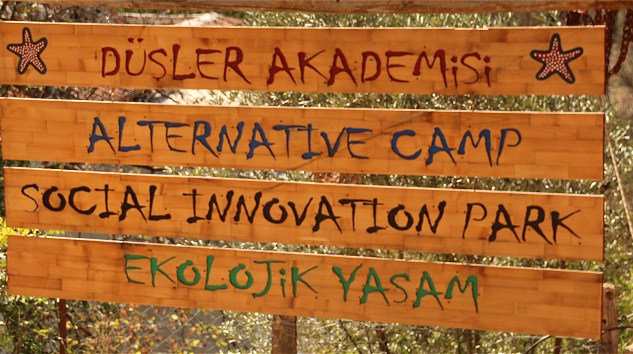 DÜŞLER AKADEMiSi
ALTERNATIVE CAMP
SOCIAL INNOVATION PARK
EKOLOJiK YASAM